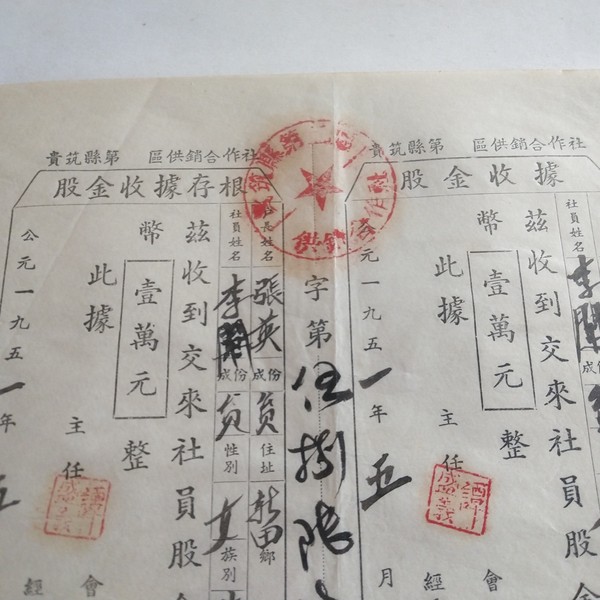 貴筑縣第 區供銷合作社
股金收據存根
社長姓名 張英 成份 貧 住址 新田鄉
社員姓名 李 成份 貧 性別 女 族別
茲收到交來社員股金
幣壹萬元整
此據
主任
會
經
公元一九五一年五
字第伍捌陸
貴筑縣第 區供銷合作社
股金收據
社員姓名 李 成份
茲收到交來社員股金
幣壹萬元整
此據
主任
會
經
公元一九五一年五月